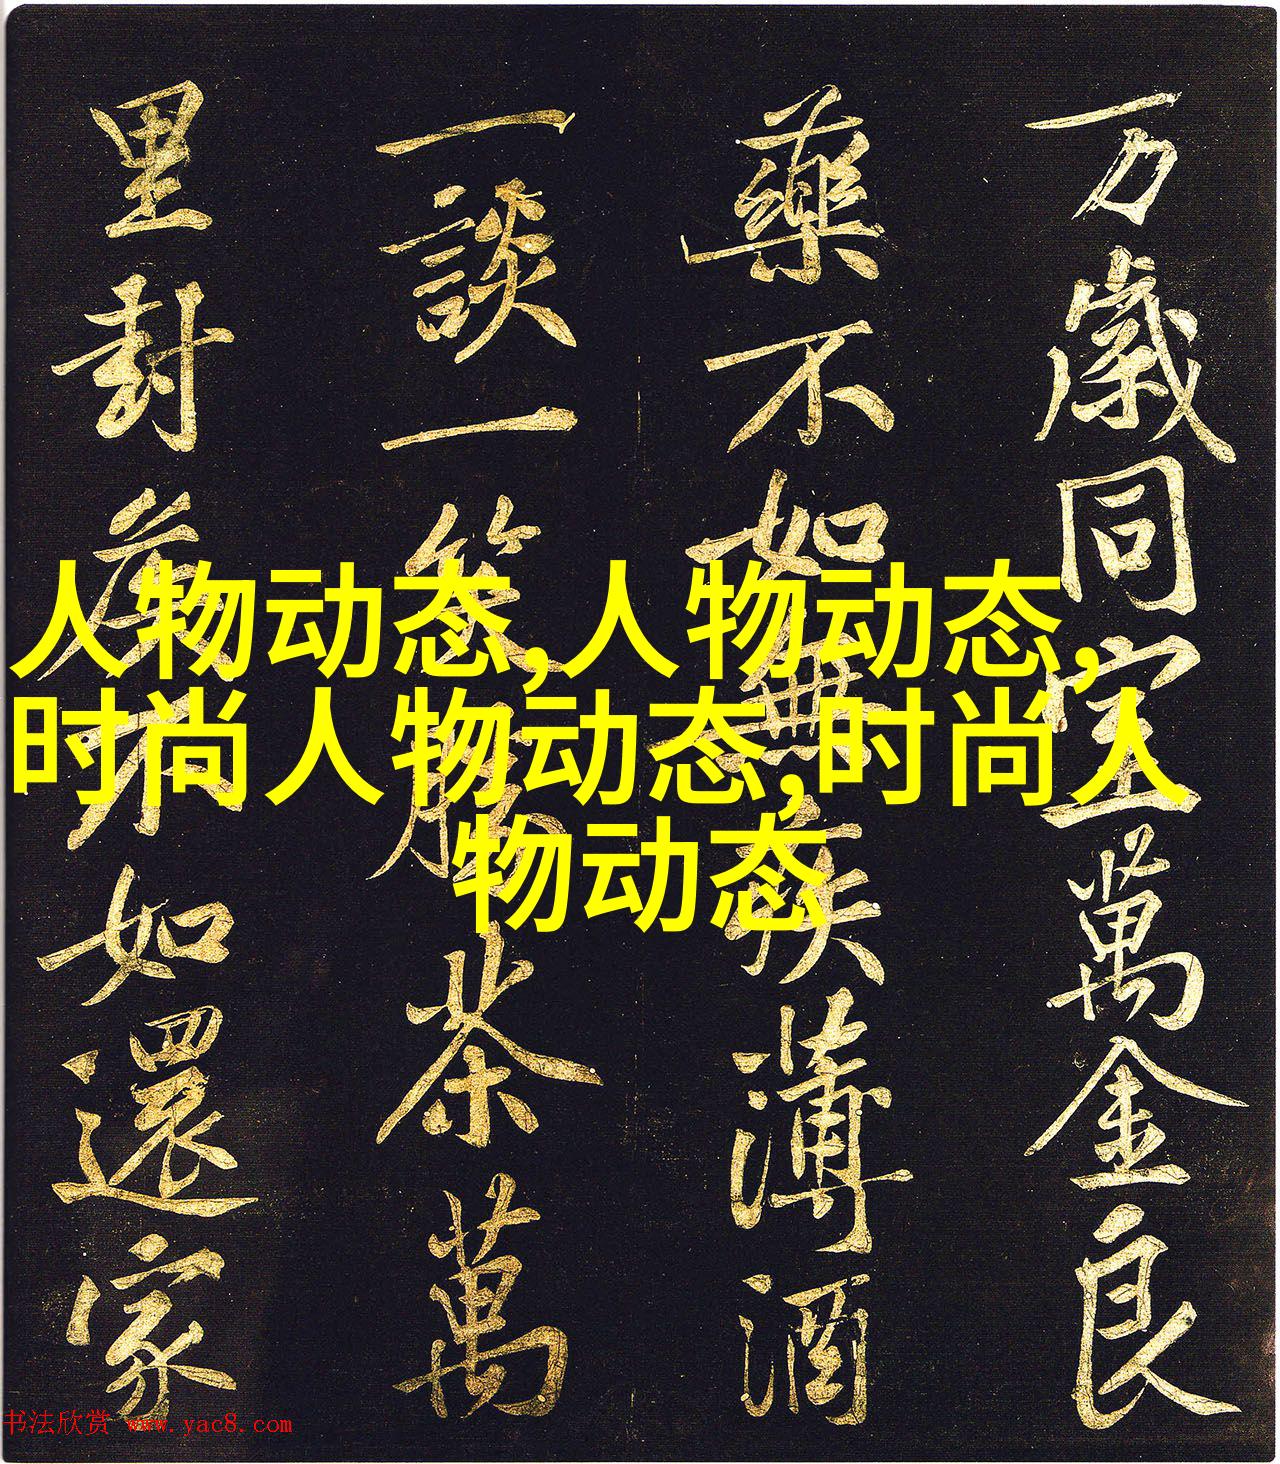 万歲同萬金良
藥不如無疾薄酒
一談一笑勝茶萬
里封侯不如還家
人物动态,人物动态,
时尚人物动态,时尚人
物动态
书法欣赏 www.yac8.com